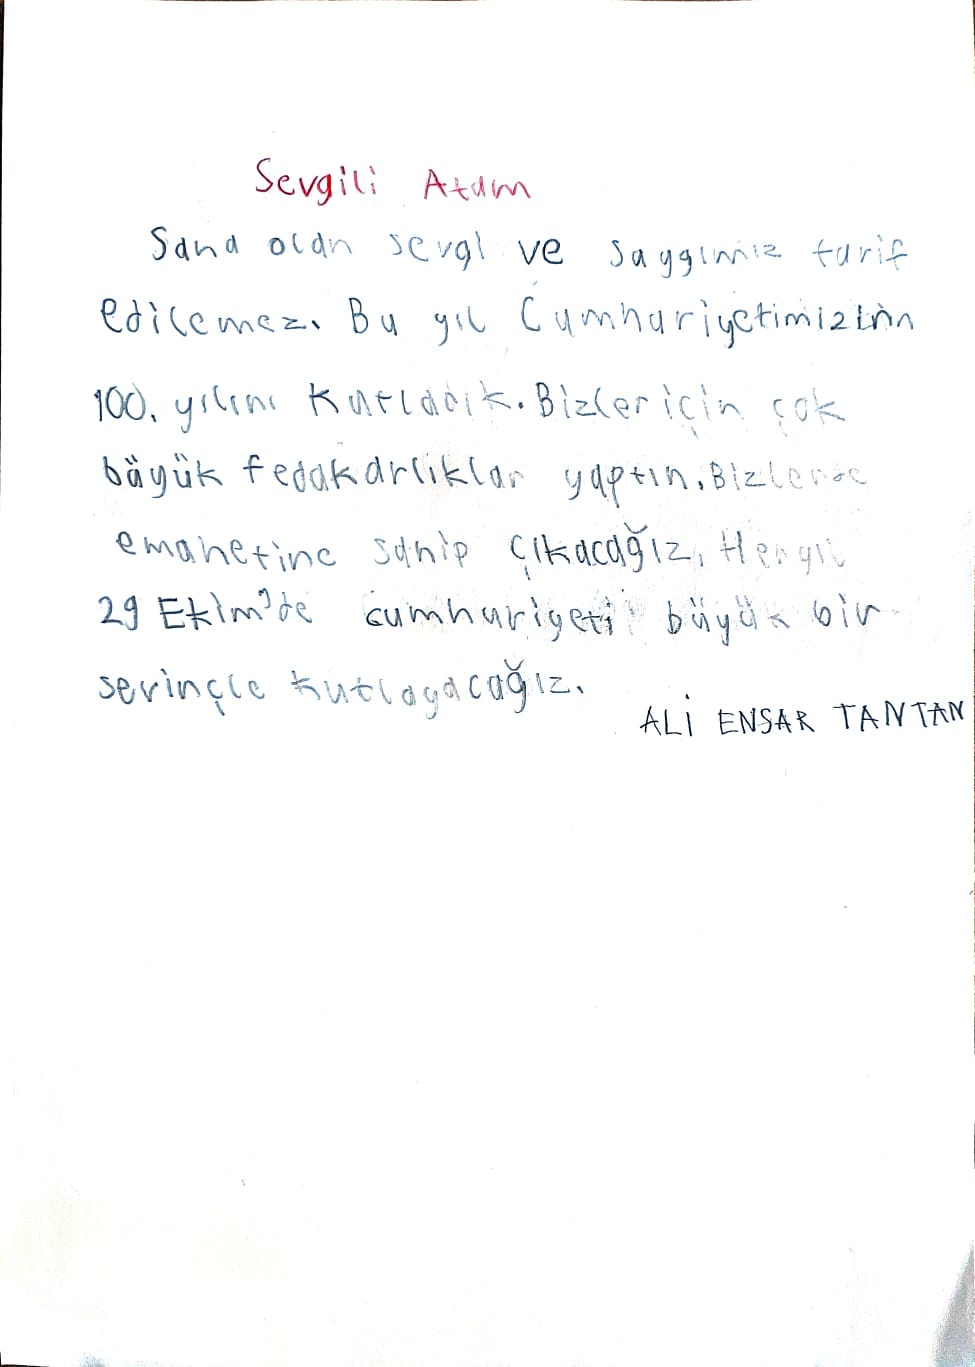 Sevgili Atam
Sana olan sevgi ve saygımız tarif
edilemez. Bu yıl Cumhuriyetimizinin
100. yılını kutladık. Bizler için çok
büyük fedakarlıklar yaptın. Bizlerde
emanetine sahip çıkacağız. Her yıl
29 Ekim'de cumhuriyeti büyük bir
sevinçle kutlayacağız.
ALİ ENSAR TANTAN